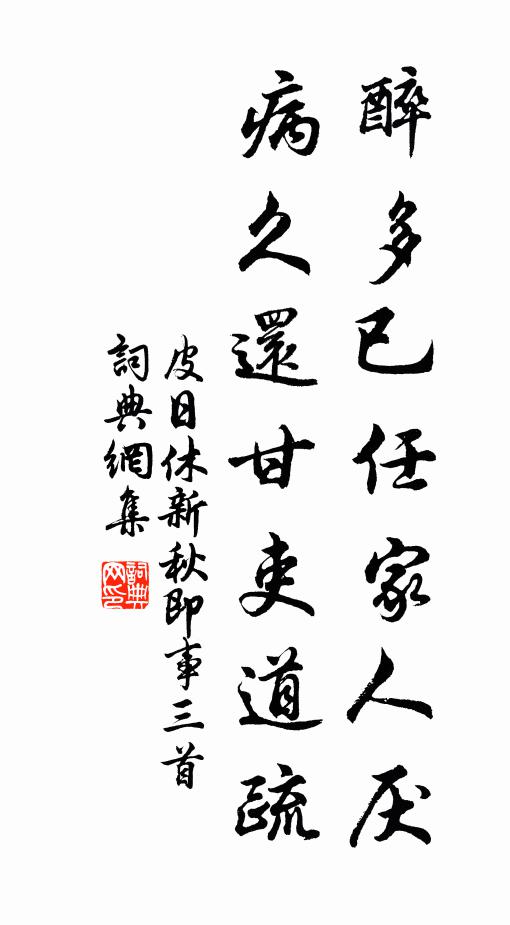 醉多已任家人厌
病久還甘吏道疏
皮日休新秋即事三首
詞典網集
詞典
网印